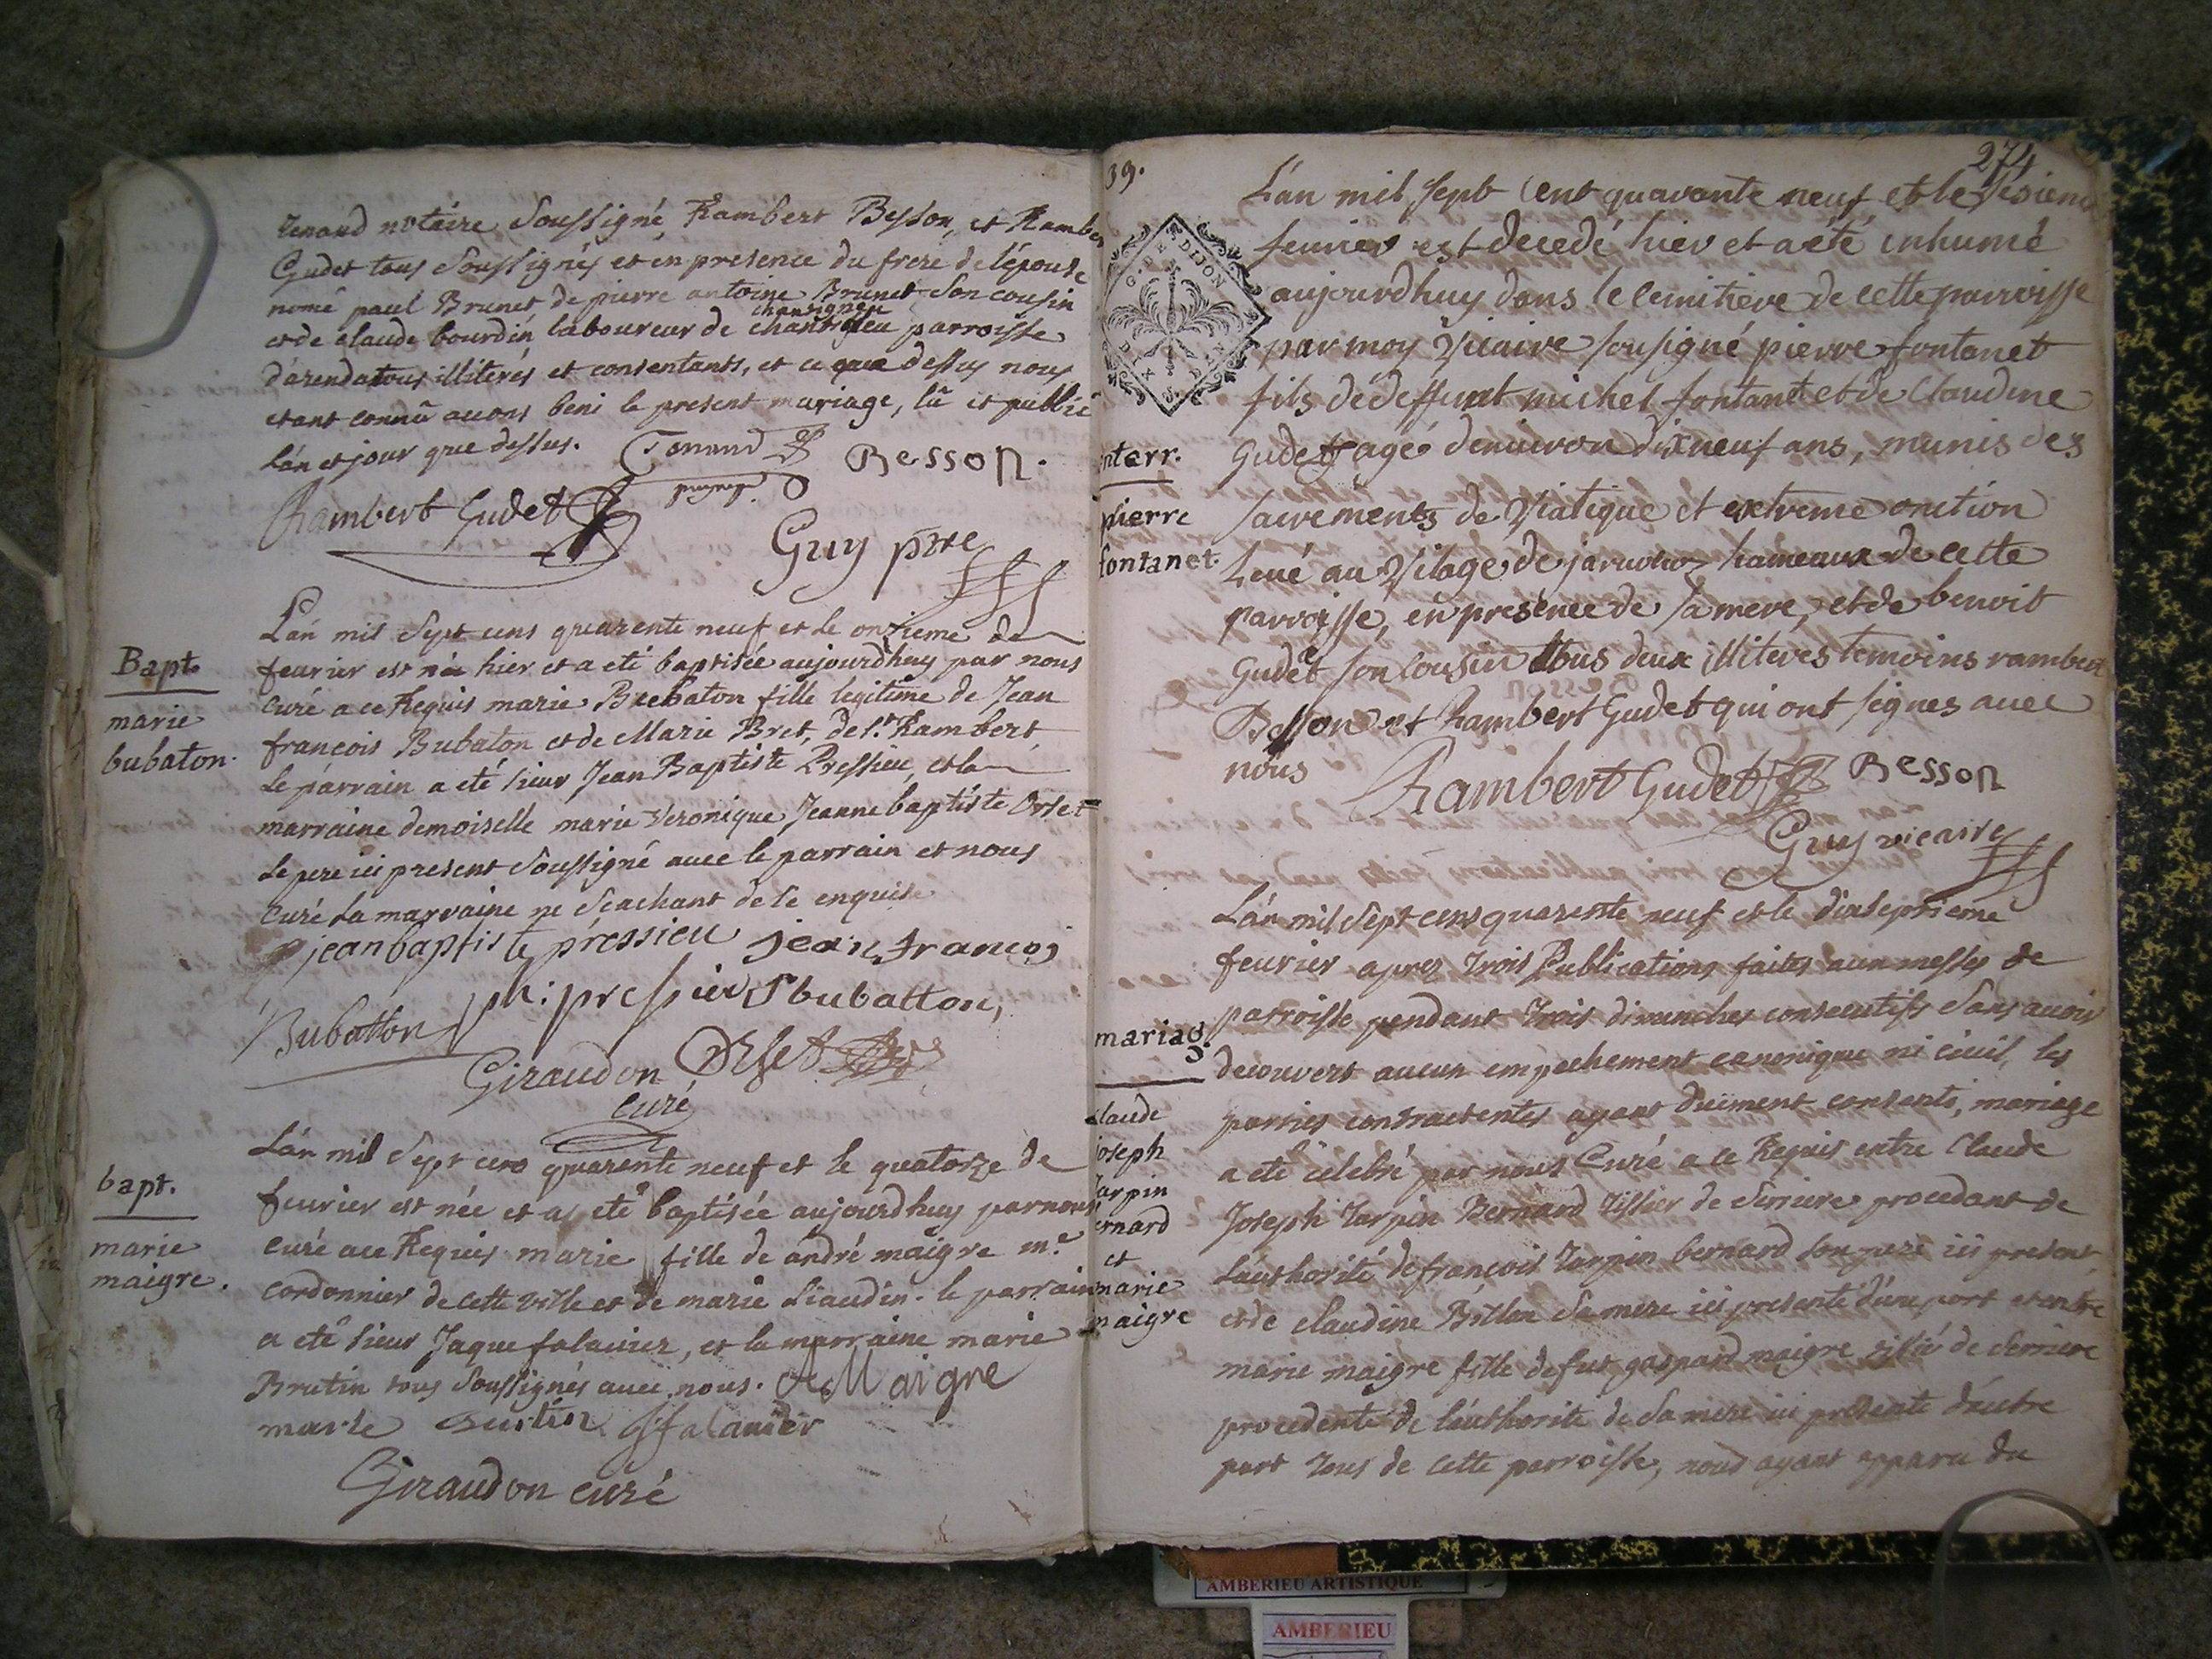 Tenand notaire Soussigné, Rambert Besson, et Rambert
Gudet tous Soussignés et en presence du frere de l'épouse
nomé paul Brunet, de pierre antoine Brunet Son cousin
chansigneu
et de claude bourdin laboureur de parroisse
d'arendatous illiterés et consentants, et ce que dessus nous
etant connû avons beni le present mariage, lû et publié
l'án et jour que dessus. Tenand Besson.
Rambert Gudet
Guy ptre
L'án mil Sept cens quarente neuf et le onzieme de
Bapt.
feurier est née hier et a eté baptisée aujourdhuy par nous
curé a ce Requis marie Bubaton fille legitime de Jean
marie
bubaton.
françois Bubaton et de Marie Bret, de St. Rambert
le párrain a eté sieur Jean Baptiste Pressieu, et la
marraine demoiselle marie veronique Jeanne baptiste Orset
le pere ici present Soussigné avec le parrain et nous
curé La marraine ne Scachant de ce enquise
jean baptiste pressieu jean francoi
Bubatton ph: pressieu Sbubatton,
Giraudon Orset
curé
L'án mil Sept cens quarente neuf et le quatorze de
bapt.
feurier est née et a eté baptisée aujourdhuy par nous
marie
maigre.
curé a ce Requis marie fille de andré maigre me.
cordonnier de cette ville et de marie Liaudin. le parrain
a eté sieur Jaque falavier, et la marraine marie
Brutin tous Soussignés avec nous. A Maigre
marie falavier
Giraudon curé
39.
274
L'án mil sept cent quarante neuf et le
feurier est decedé hier et a été inhumé
G. DE DIJON
aujourdhuy dans le cemitiere de cette parroisse
par moy Vicaire sousigné pierre fontanet
fils de deffunt michel fontanet et de Claudine
nterr.
Gudet agé denuiron dix neuf ans, munis des
pierre
fontanet.
sacrements de Viatique et extreme onction
Leué au Vilage de hameaux de cette
parroisse, en presence de sa mere, et de benoit
Gudet son Cousin tous deux illiteres temoins rambert
Besson et Rambert Gudet qui ont signes avec
nous Rambert Gudet Besson
Guy vicaire
L'án mil Sept cens quarente neuf et le dixseptieme
feurier apres trois Publications faites aux messes de
mariag.
parroisse pendant trois dimanches consecutifs Sans avoir
decouvert aucun empechement canonique ni civil, les
claude
joseph
tarpin
ernard
et
marie
maigre
parties contractentes ayant duëment consenti, mariage
a eté celebré par nous Curé a ce Requis entre Claude
Joseph Tarpin Bernard Tissier de Serriere procedant de
L'authorité de françois Tarpin bernard Son pere ici present,
et de claudine Billon Sa mere ici presente d'une part et entre
marie maigre fille de fut gaspard maigre de Serriere
procedente de l'authorite de Sa mere ici presente d'autre
part tous de cette parroisse, nous ayant apparu du
AMBERIEU ARTISTIQUE
AMBERIEU